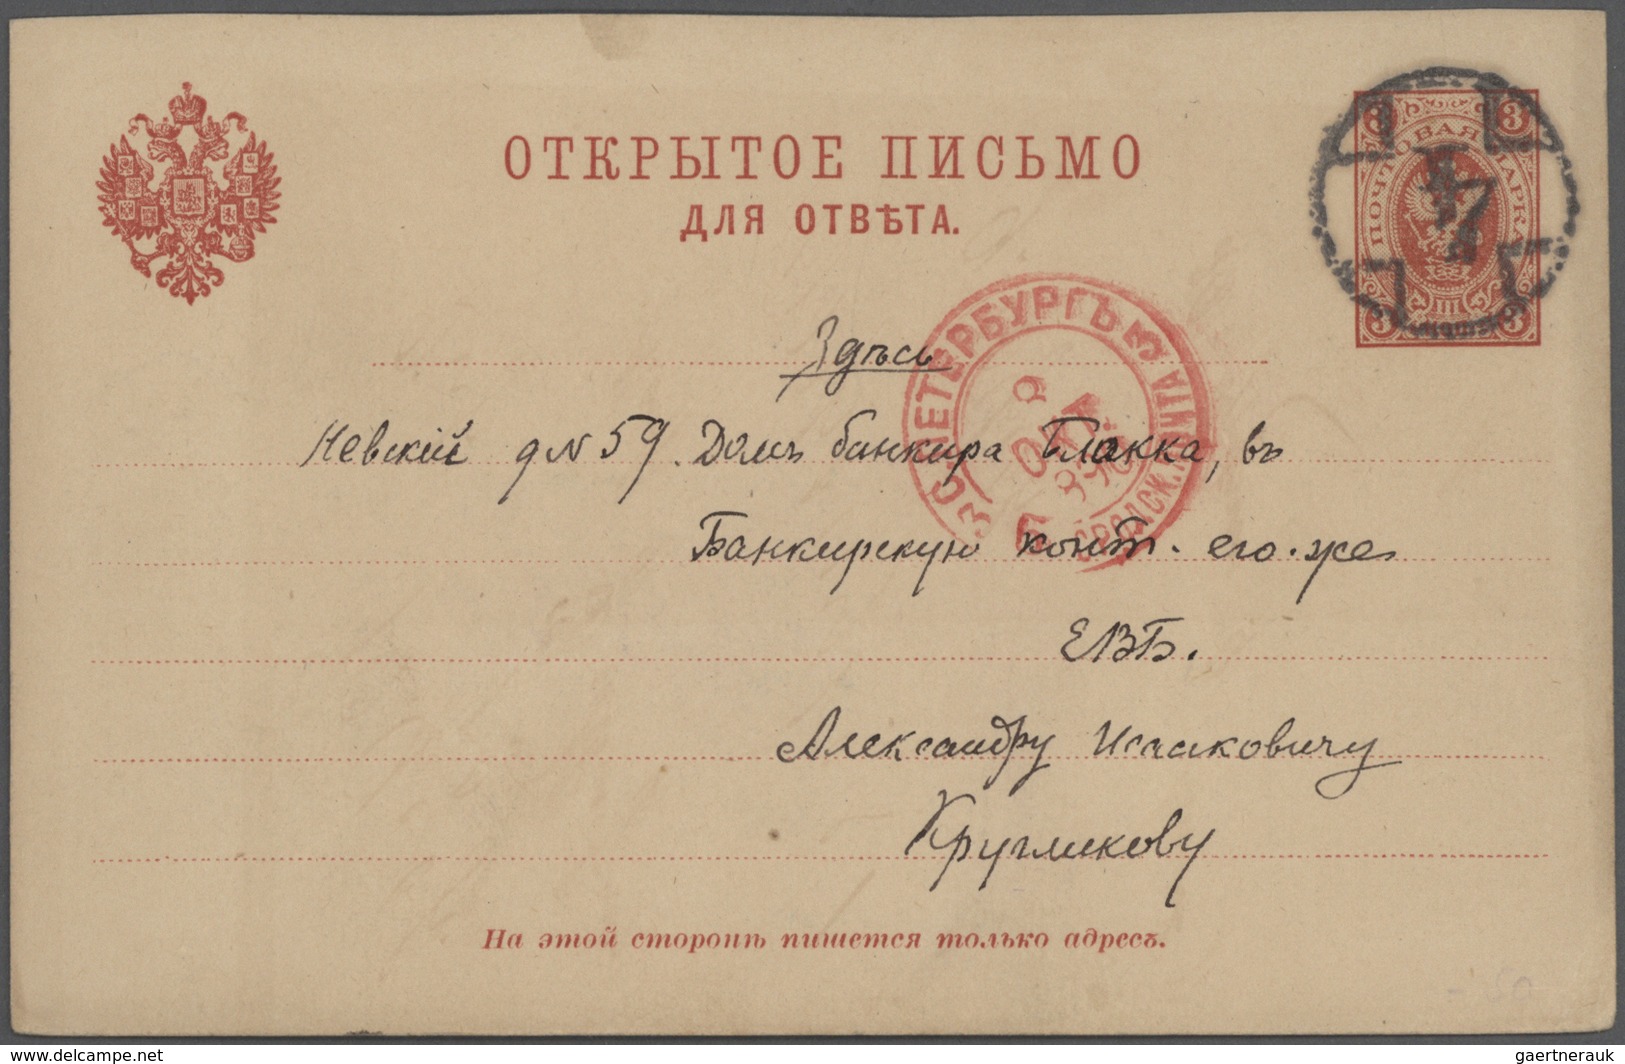 ОТКРЫТОЕ ПИСЬМО
ДЛЯ ОТВѢТА.
3 3
ПОЧТОВАЯ МАРКА
III
3 3
7
С.ПЕТЕРБУРГЪ 3
ОКТ
ГОРОДСК.
Здѣсь
Невскій д N 59. Домъ банкира Блокка, въ
Банкирскую конт. его-же
ЕВБ.
Александру Исааковичу
Кругликову
На этой сторонѣ пишется только адресъ.
delcampe.net
gaertnerauk